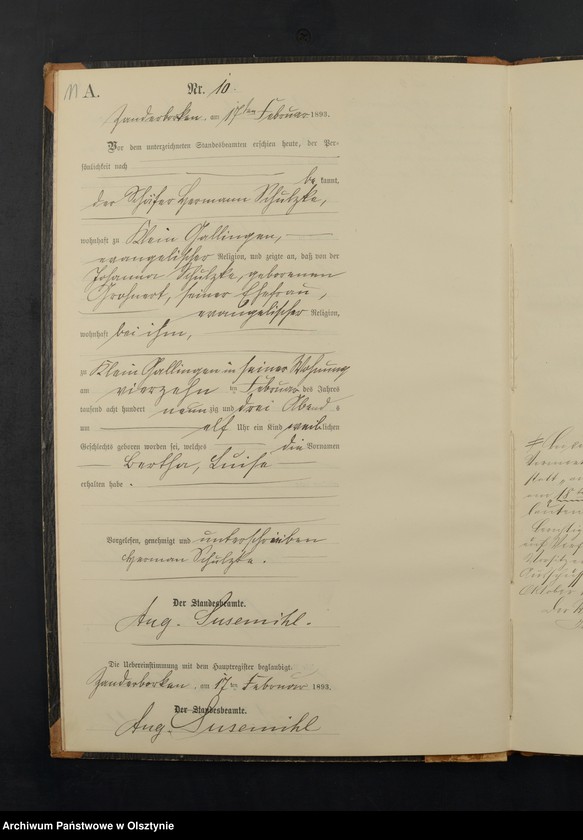 11 A. Nr. 10.
Zanderborken, am 17ten Februar 1893.
Vor dem unterzeichneten Standesbeamten erschien heute, der Per-
sönlichkeit nach
be kannt,
der Schäfer Hermann Schulzke,
wohnhaft zu Klein Gallingen,
evangelischer Religion, und zeigte an, daß von der
Johanna Schulzke, geborenen
Grohnert, seiner Ehefrau,
evangelischer Religion,
wohnhaft bei ihm,
zu Klein Gallingen in seiner Wohnung
am vierzehn ten Februar des Jahres
tausend acht hundert neun zig und drei Abend s
um elf Uhr ein Kind weib lichen
Geschlechts geboren worden sei, welches die Vornamen
Bertha, Luise
erhalten habe.
Vorgelesen, genehmigt und unterschrieben
Herman Schulzke.
Der Standesbeamte.
Aug. Susemihl.
Die Uebereinstimmung mit dem Hauptregister beglaubigt.
Zanderborken, am 17ten Februar 1893.
Der Standesbeamte.
Aug. Susemihl
Archiwum Państwowe w Olsztynie